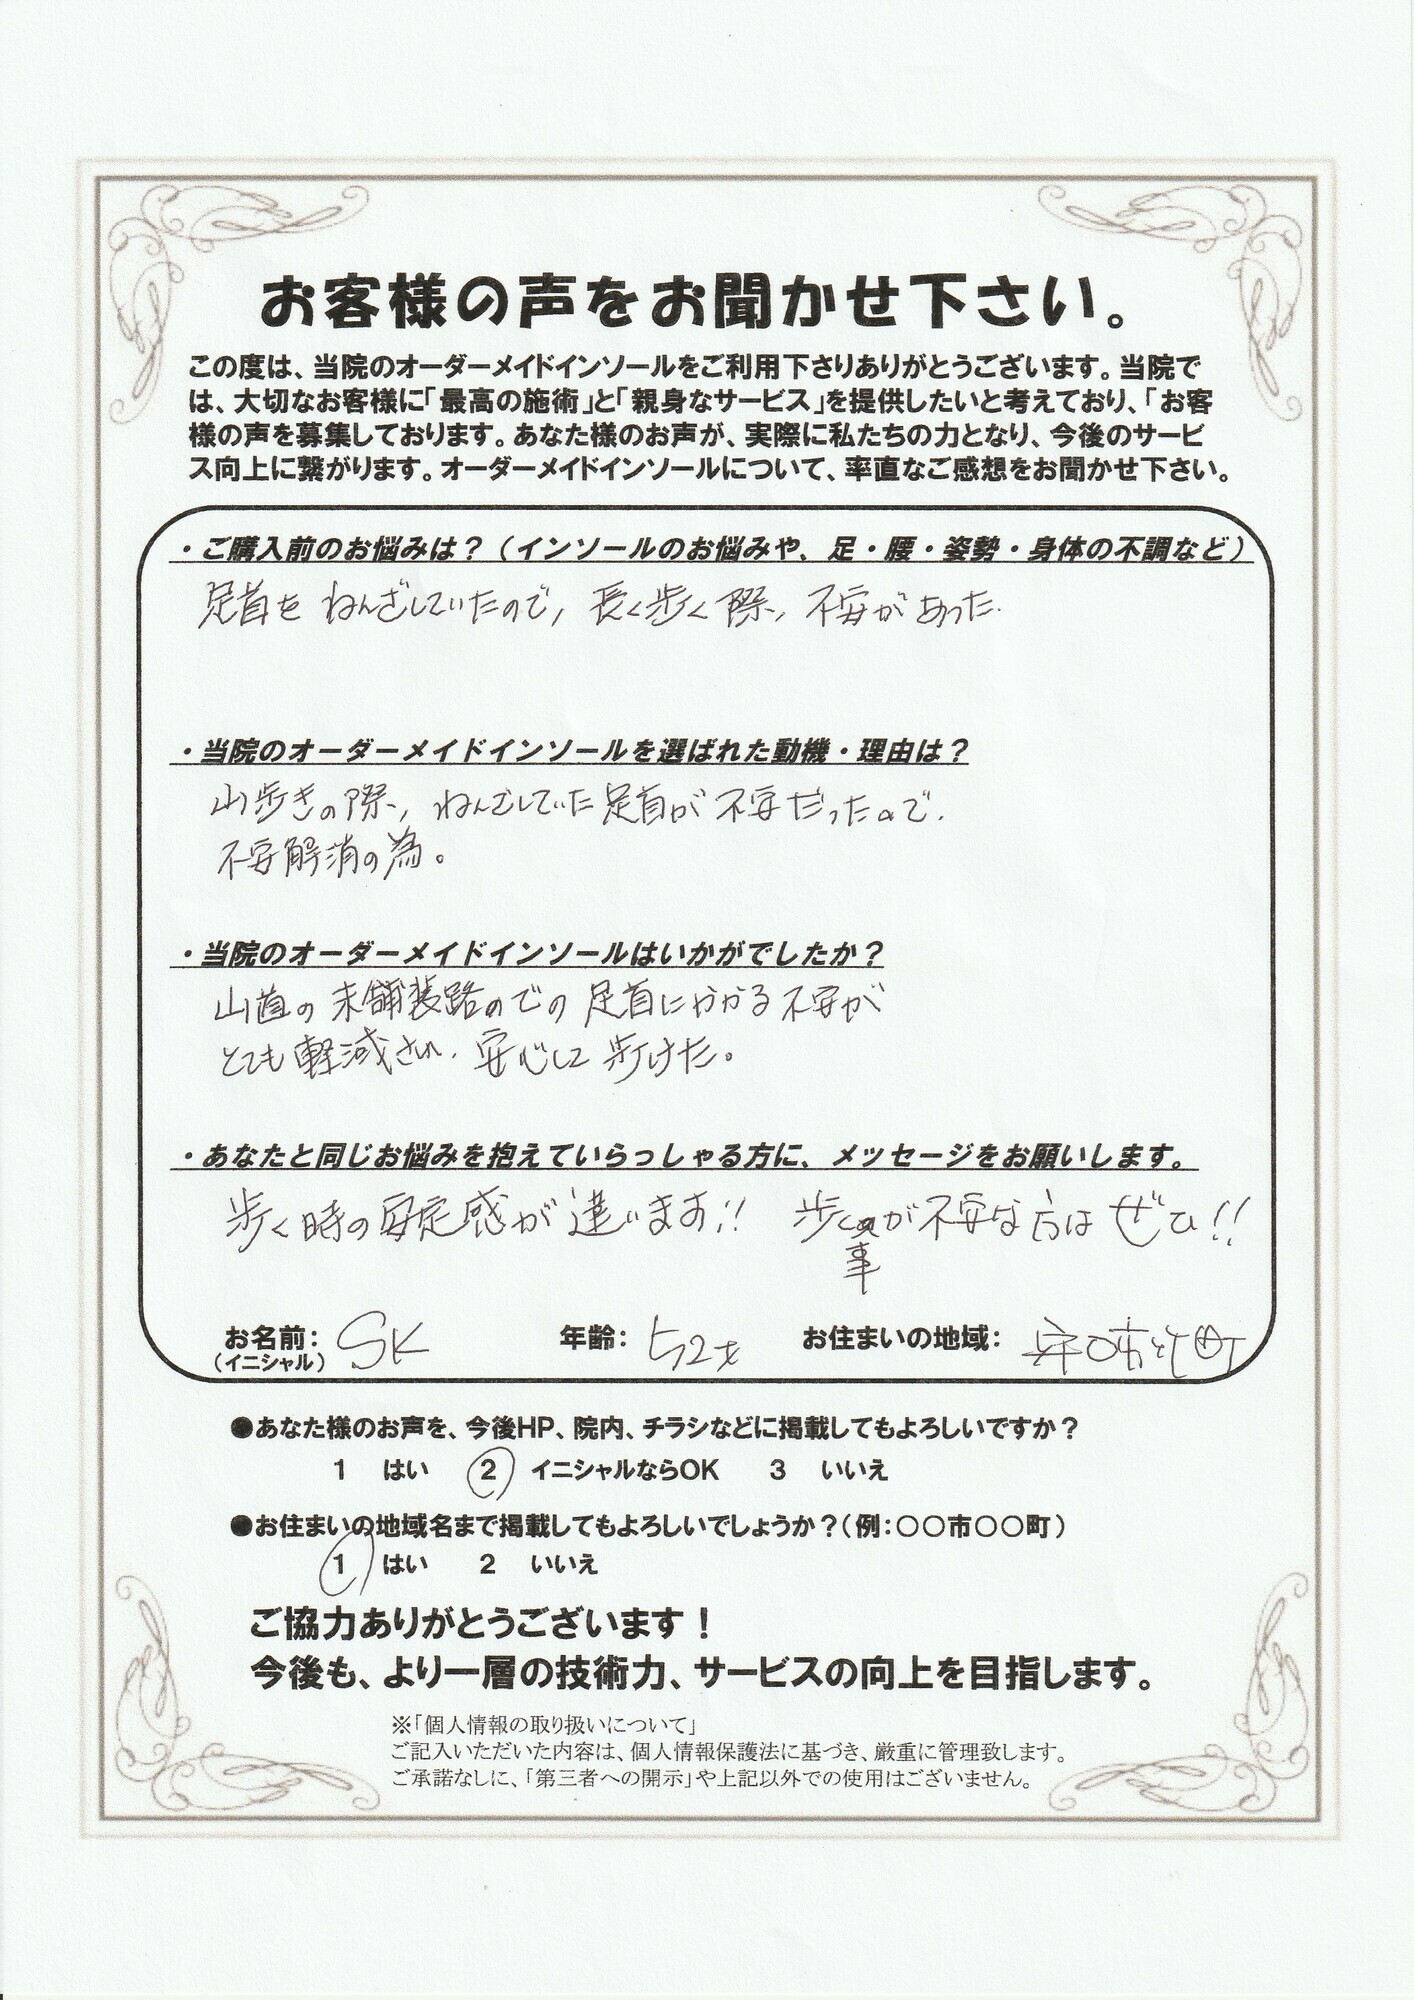 お客様の声をお聞かせ下さい。
この度は、当院のオーダーメイドインソールをご利用下さりありがとうございます。当院で
は、大切なお客様に「最高の施術」と「親身なサービス」を提供したいと考えており、「お客
様の声を募集しております。あなた様のお声が、実際に私たちの力となり、今後のサービ
ス向上に繋がります。オーダーメイドインソールについて、率直なご感想をお聞かせ下さい。
・ご購入前のお悩みは？（インソールのお悩みや、足・腰・姿勢・身体の不調など）
足首をねんざしていたので、長く歩く際、不安があった.
・当院のオーダーメイドインソールを選ばれた動機・理由は？
山歩きの際、ねんざしていた足首が不安だったので.
不安解消の為。
・当院のオーダーメイドインソールはいかがでしたか？
山道の未舗装路のでの足首にかかる不安が
とても軽減され、安心して歩けた。
・あなたと同じお悩みを抱えていらっしゃる方に、メッセージをお願いします。
歩く時の安定感が違います!! 歩く事が不安な方はぜひ!!
お名前： SK 年齢： 52才 お住まいの地域： 市 町
（イニシャル）
●あなた様のお声を、今後HP、院内、チラシなどに掲載してもよろしいですか？
1 はい 2 イニシャルならOK 3 いいえ
●お住まいの地域名まで掲載してもよろしいでしょうか？（例：○○市○○町）
1 はい 2 いいえ
ご協力ありがとうございます！
今後も、より一層の技術力、サービスの向上を目指します。
※「個人情報の取り扱いについて」
ご記入いただいた内容は、個人情報保護法に基づき、厳重に管理致します。
ご承諾なしに、「第三者への開示」や上記以外での使用はございません。